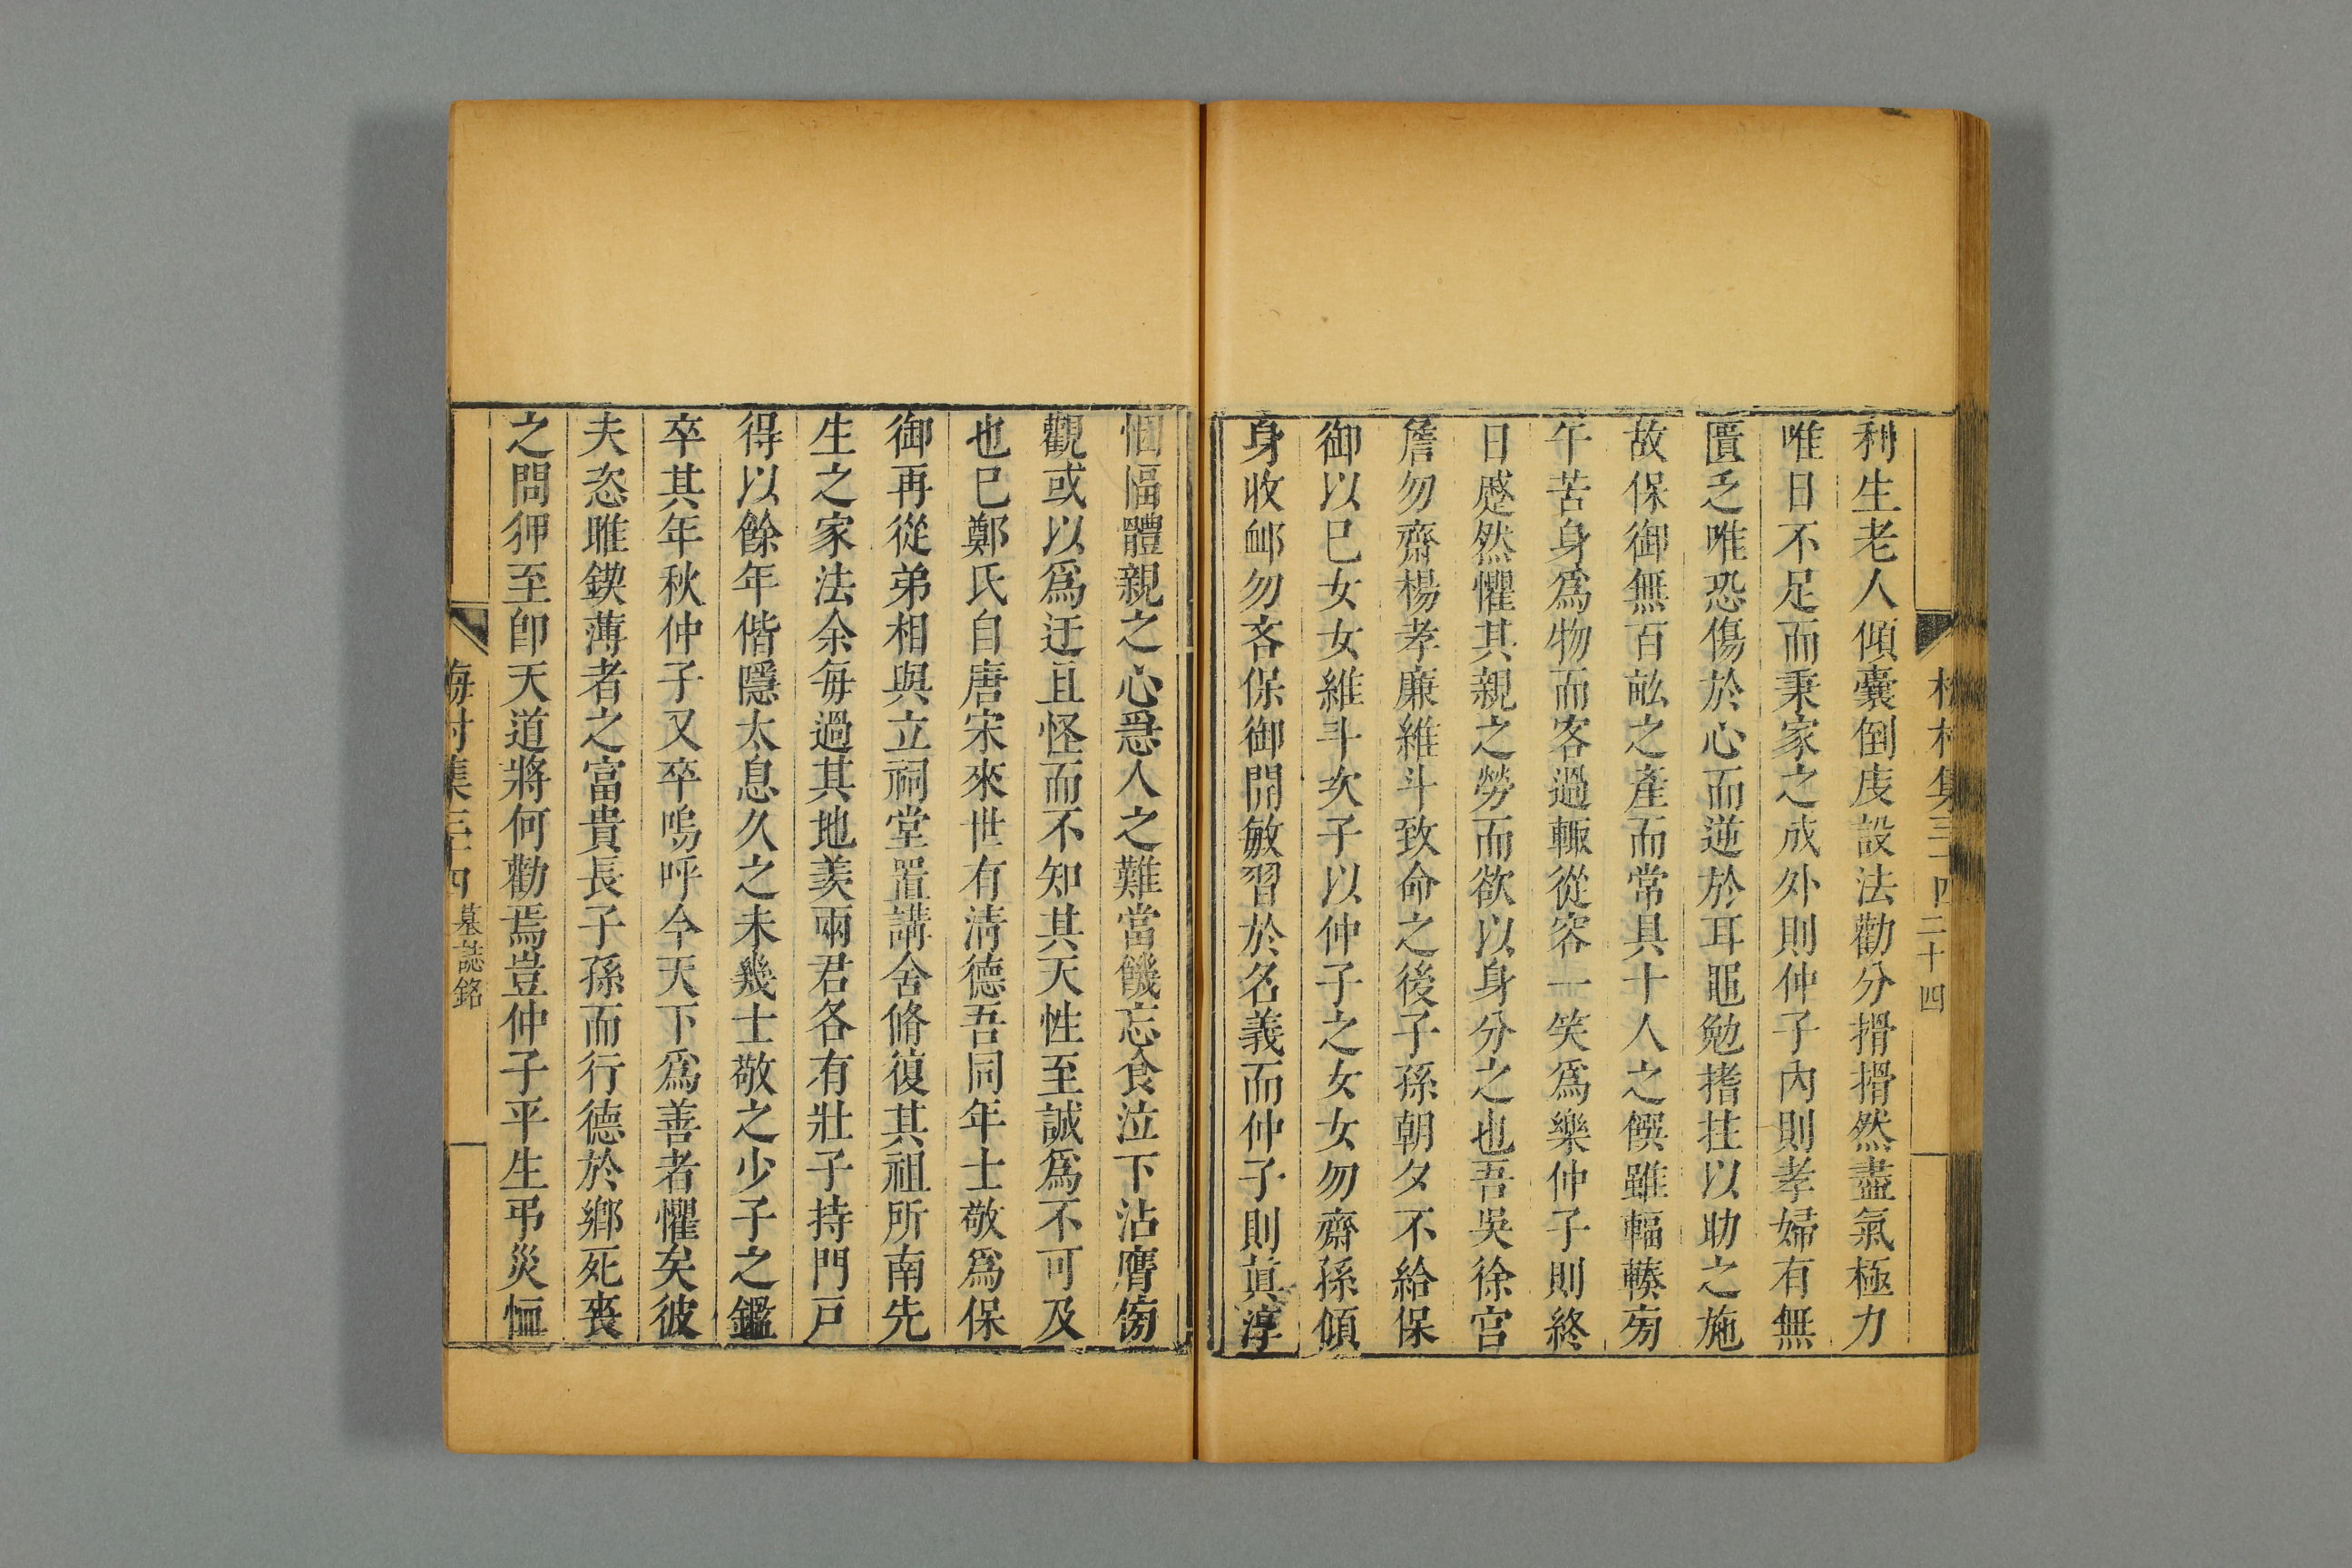 利生老人傾囊倒庋設法勸分搰搰然盡氣極力
唯日不足而秉家之成外則仲子內則孝婦有無
匱乏唯恐傷於心而逆於耳黽勉搘拄以助之施
故保御無百畝之產而常具十人之饌雖輻輳旁
午苦身爲物而客過輒從容一笑爲樂仲子則終
日蹙然懼其親之勞而欲以身分之也吾吳徐宫
詹勿齋楊孝廉維斗致命之後子孫朝夕不給保
御以巳女女維斗次子以仲子之女女勿齋孫傾
身收䘏勿吝保御開敏習於名義而仲子則眞淳
悃愊體親之心急人之難當饑忘食泣下沾膺傍
觀或以爲迂且怪而不知其天性至誠爲不可及
也巳鄭氏自唐宋來世有淸德吾同年士敬爲保
御再從弟相與立祠堂置講舍脩復其祖所南先
生之家法余每過其地羨兩君各有壯子持門戸
得以餘年偕隱太息久之未幾士敬之少子之鑑
卒其年秋仲子又卒嗚呼今天下爲善者懼矣彼
夫恣睢鍥薄者之富貴長子孫而行德於鄉死喪
之問狎至卽天道將何勸焉豈仲子平生弔災恤
梅村集三十四 墓誌銘